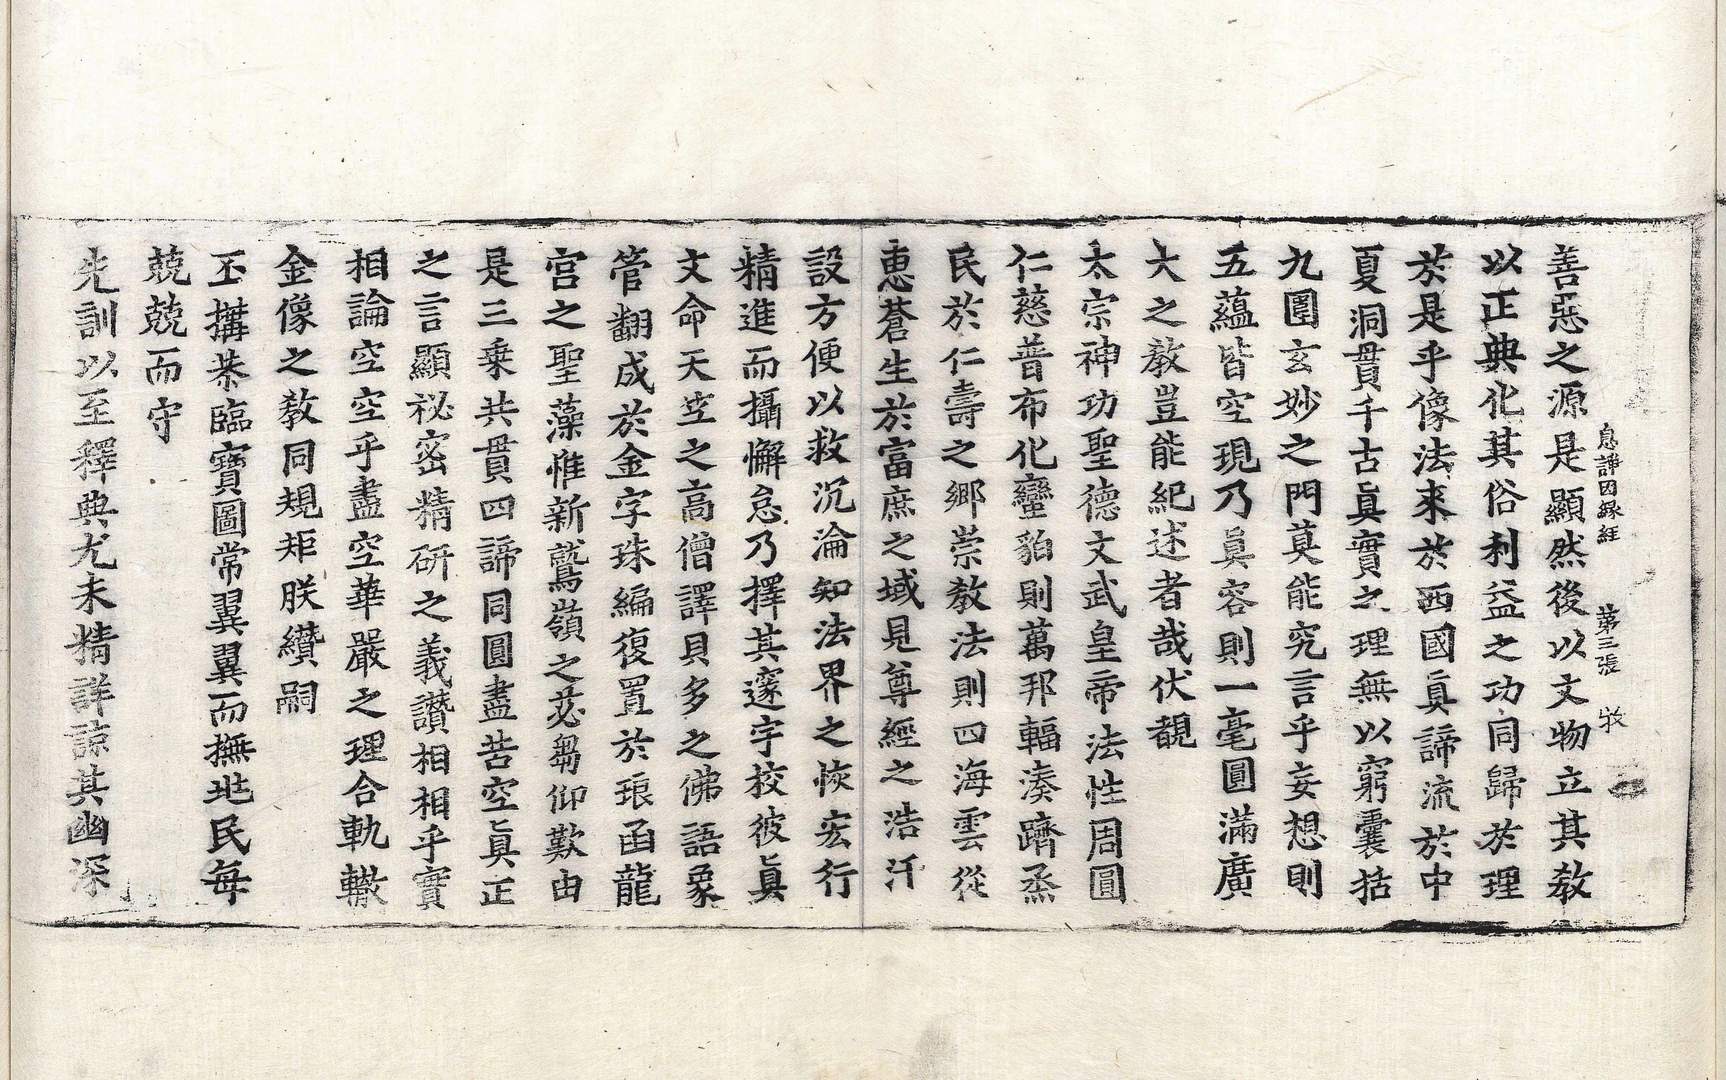 息諍因緣經　第三張　牧
善惡之源是顯然後以文物立其教
以正典化其俗利益之功同歸於理
於是乎像法來於西國眞諦流於中
夏洞貫千古眞實之理無以窮囊括
九圍玄妙之門莫能究言乎妄想則
五蘊皆空現乃眞容則一毫圓滿廣
大之教豈能紀述者哉伏覩
太宗神功聖德文武皇帝法性周圓
仁慈普布化蠻貊則萬邦輻湊躋烝
民於仁壽之鄉崇教法則四海雲從
惠蒼生於富庶之域見尊經之浩汗
設方便以救沉淪知法界之恢宏行
精進而攝懈怠乃擇其邃宇校彼眞
文命天竺之高僧譯貝多之佛語象
管翻成於金字珠編復置於琅函龍
宮之聖藻惟新鷲嶺之苾蒭仰歎由
是三乘共貫四諦同圓盡苦空眞正
之言顯祕密精研之義讚相相乎實
相論空空乎盡空華嚴之理合軌轍
金像之教同規矩朕纘嗣
丕搆恭臨寶圖常翼翼而撫𡉏民每
兢兢而守
先訓以至釋典尤未精詳諒其幽深